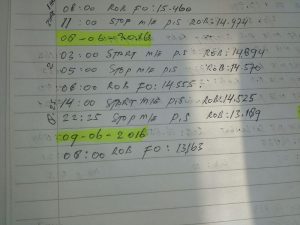 08:00 ROB FO: 15-460
11:00 STOP M/E ROB: 14.924
08-06-2016
02:00 START M/E P.S ROB: 14894
05:00 STOP M/E P.S ROB: 14.570
08:00 ROB FO: 14.555
14:00 START M/E P.S ROB: 14.525
22:25 STOP M/E P.S ROB: 13.189
09-06-2016
08:00 ROB FO: 13163